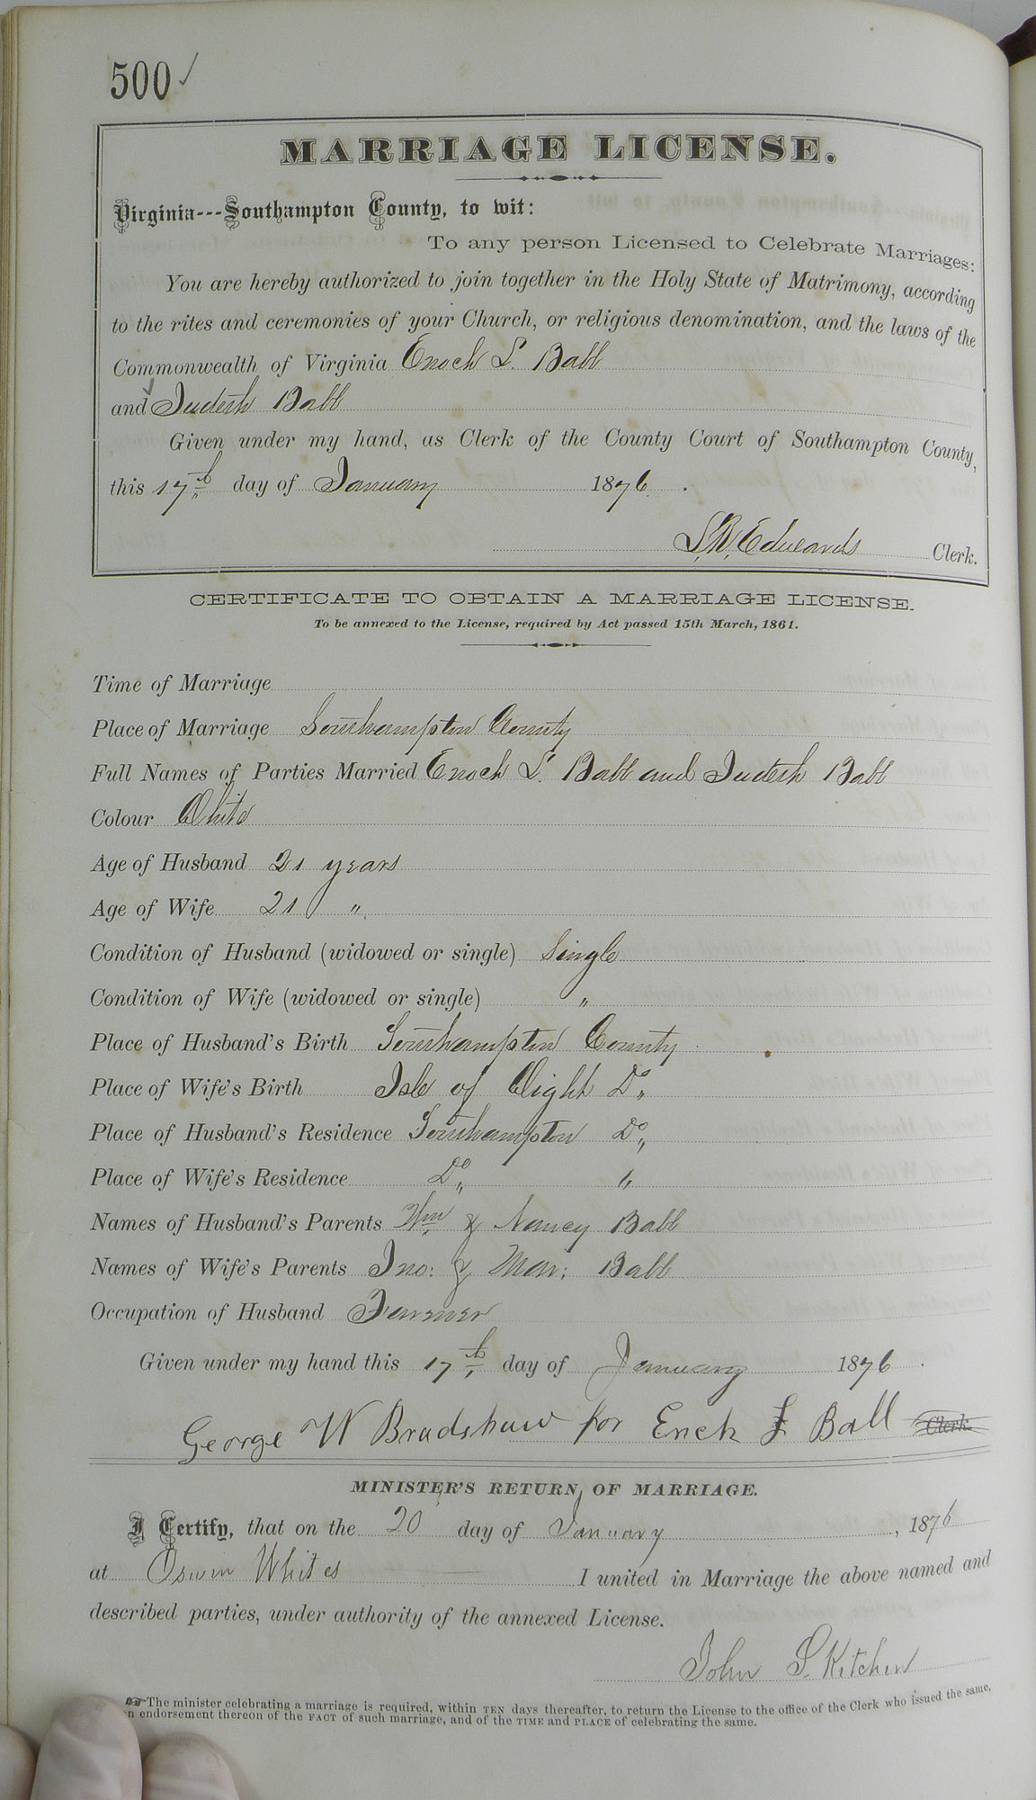 500 ✓
MARRIAGE LICENSE.
Virginia---Southampton County, to wit:
To any person Licensed to Celebrate Marriages:
You are hereby authorized to join together in the Holy State of Matrimony, according
to the rites and ceremonies of your Church, or religious denomination, and the laws of the
Commonwealth of Virginia Enoch L. Babb
and Judeth Babb
Given under my hand, as Clerk of the County Court of Southampton County,
this 17th day of January 1876.
L.R. Edwards Clerk.
CERTIFICATE TO OBTAIN A MARRIAGE LICENSE.
To be annexed to the License, required by Act passed 15th March, 1861.
Time of Marriage
Place of Marriage Southampton County
Full Names of Parties Married Enoch L. Babb and Judeth Babb
Colour White
Age of Husband 21 years
Age of Wife 21 "
Condition of Husband (widowed or single) Single
Condition of Wife (widowed or single) "
Place of Husband's Birth Southampton County
Place of Wife's Birth Isle of Wight Do
Place of Husband's Residence Southampton Do
Place of Wife's Residence Do "
Names of Husband's Parents Wm & Nancy Babb
Names of Wife's Parents Jno: & Mar: Babb
Occupation of Husband Farmer
Given under my hand this 17th day of January 1876
George W Bradshaw for Enck L Ball Clerk.
MINISTER'S RETURN OF MARRIAGE.
I Certify, that on the 20 day of January, 1876
at Oswin Whites I united in Marriage the above named and
described parties, under authority of the annexed License.
John S. Kitchen
The minister celebrating a marriage is required, within TEN days thereafter, to return the License to the office of the Clerk who issued the same,
n endorsement thereon of the FACT of such marriage, and of the TIME and PLACE of celebrating the same.